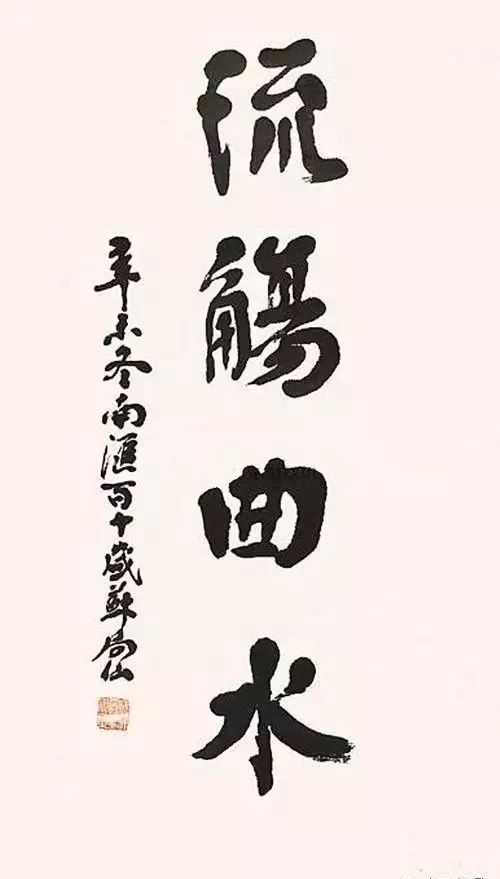 流觴曲水
辛未冬南滙百十歲蘇局仙